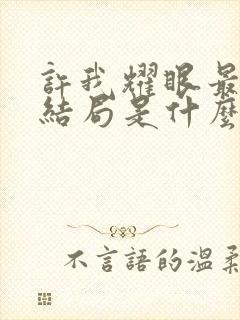 許我耀眼最
結局是什麼
不言語的溫柔